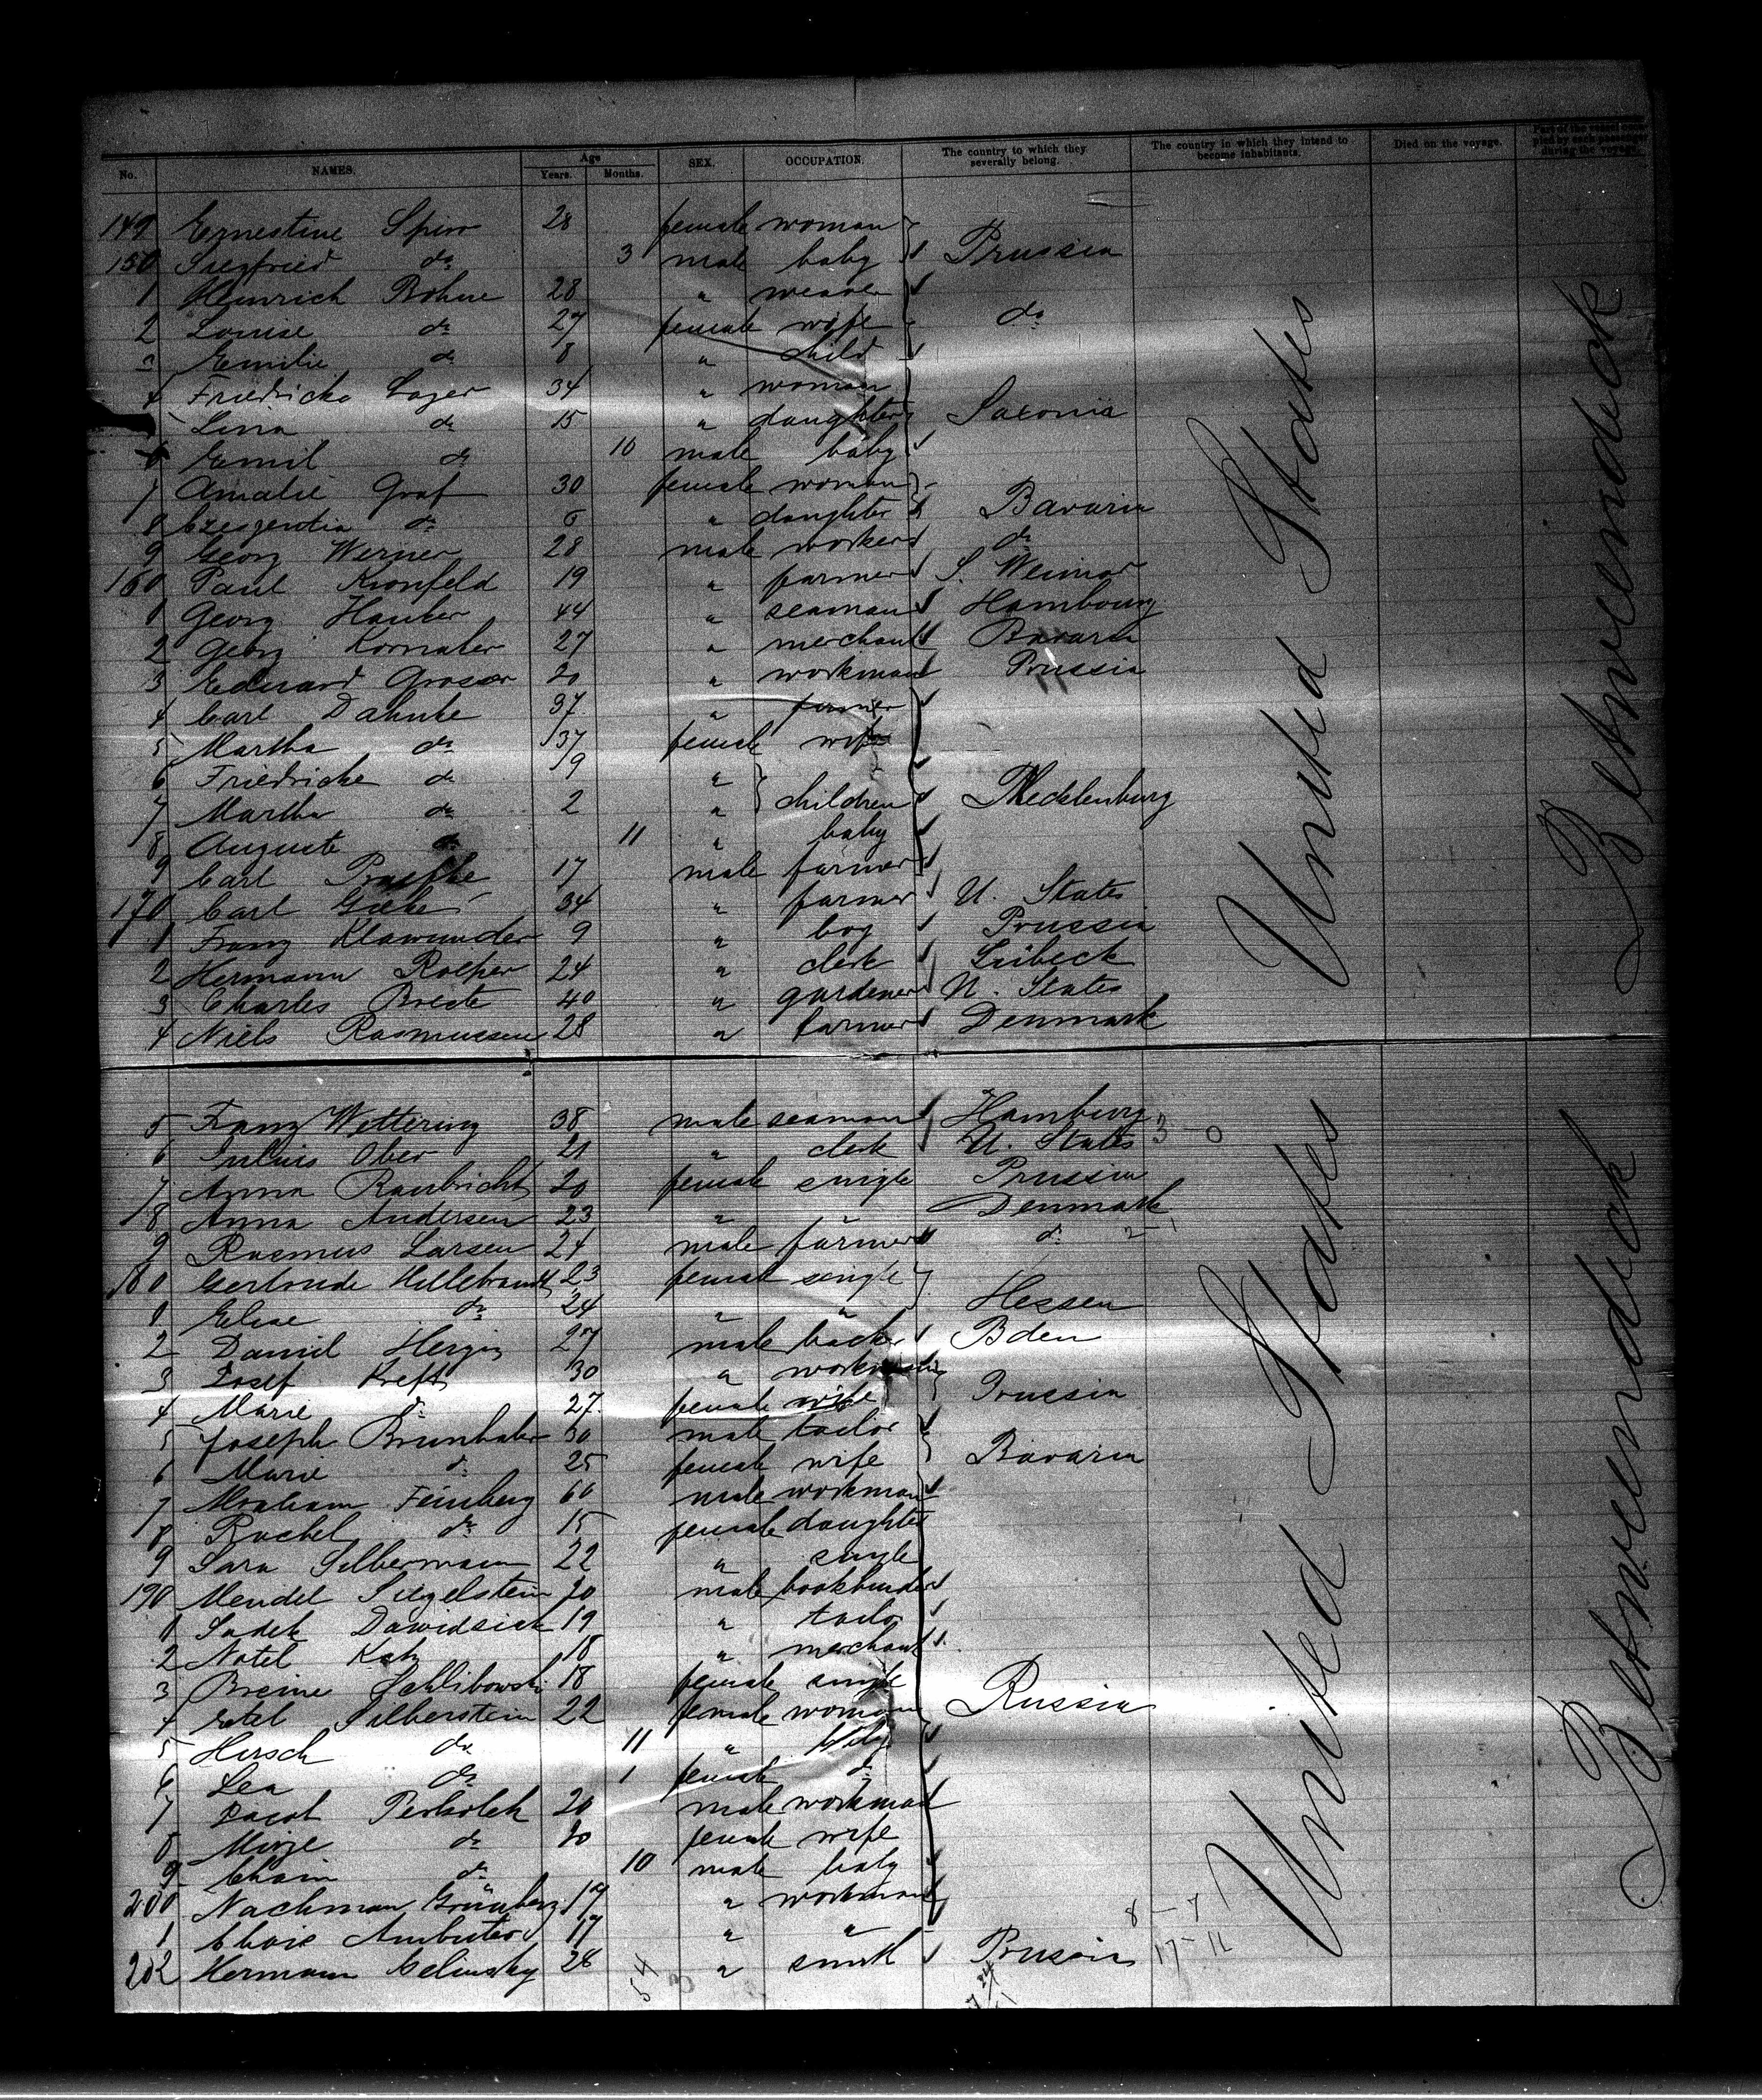 No. NAMES. Age Years. Months. SEX. OCCUPATION. The country to which they severally belong. The country in which they intend to become inhabitants. Died on the voyage. Part of the vessel occupied by each passenger during the voyage.
149 Ernestine Spiro 28 female woman
150 Siegfried do 3 male baby Prussia
1 Heinrich Böhne 28 " weaver
2 Louise do 27 female wife do
3 Emilie do 8 " child
4 Friedricke Lager 34 " woman
5 Lina do 15 " daughter Saxonia
6 Emil do 10 male baby
7 Amalie Graf 30 female woman
8 do 6 " daughter Bavaria
9 Georg Werner 28 male worker do
160 Paul Kronfeld 19 " farmer S. Weimar
1 Georg Hauber 44 " seaman Hambourg
2 Georg Kornater 27 " merchant Bavaria
3 Eduard Grosser 20 " workman Prussia
4 Carl Dahnke 37 " farmer
5 Martha do 37 female wife
6 Friedricke do 9 "
7 Martha do 2 " children Mecklenburg
8 Auguste do 11 " baby
9 Carl 17 male farmer
170 Carl 34 " farmer U. States
1 Franz Klawunder 9 " boy Prussia
2 Hermann Rolher 24 " clerk Lübeck
3 Charles Brede 40 " gardener U. States
4 Niels Rasmussen 28 " farmer Denmark
United States
Betweendeck
5 Franz Wettering 38 male seaman Hamburg
6 Julius Ober 21 " clerk U. States 3 - 0
7 Anna Raubricht 20 female single Prussia
8 Anna Andersen 23 " " Denmark
9 Rasmus Larsen 24 male farmer do 2 - 1
180 Gertrude Hillebrandt 23 female single
1 Elise do 24 " " Hessen
2 Daniel Herzig 27 male backer Bden
3 Josef Kreft 30 " workman
4 Marie do 27 female wife Prussia
5 Joseph Brunhuber 30 male tailor
6 Marie do 25 female wife Bavaria
7 Abraham Feinberg 60 male workman
8 Rachel do 15 female daughter
9 Sara Silbermann 22 " single
190 Mendel Siegelstein 20 male bookbinder
1 Sadek Dawidsick 19 " tailor
2 Notel Katz 18 " merchant
3 Breine 18 female single
4 Etel Silberstein 22 female woman Russia
5 Hirsch do 11 " baby
6 Lea do 1 female do
7 Jacob 20 male workman
8 Mirze do 20 female wife
9 Chaim do 10 male baby
200 Nachman Grünberg 19 " workman
1 17 " "
8 - 7
202 Hermann Celinsky 28 " smith Prussia 17 - 11
54 3
United States
Betweendeck